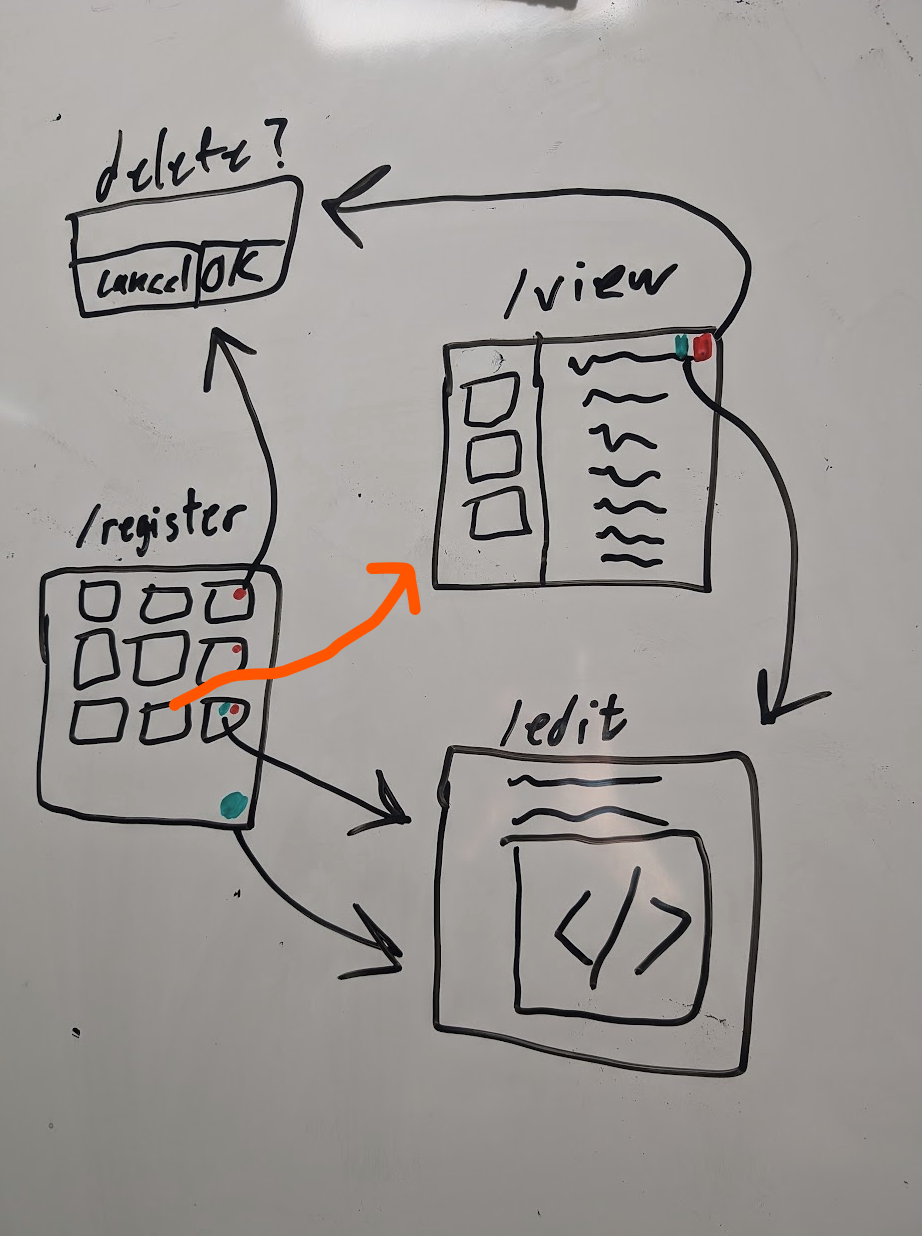 delete?
cancel OK
/view
/register
/edit
</>